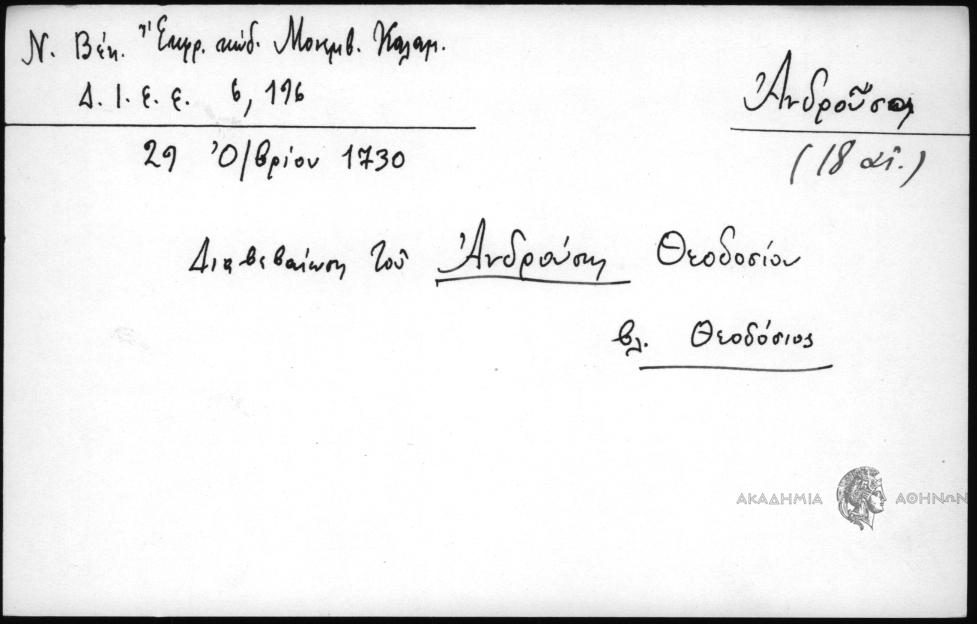 Ν. Βέη. Ἔκφρ. κώδ. Μονεμβ. Καλαμ.
Δ. Ι. Ε. Ε. 6, 196
Ἀνδροῦσα
29 Ὀ/βρίου 1730
(18 αἰ.)
Διαβεβαίωση τοῦ Ἀνδρούσης Θεοδοσίου
βλ. Θεοδόσιος
ΑΚΑΔΗΜΙΑ ΑΘΗΝΩΝ